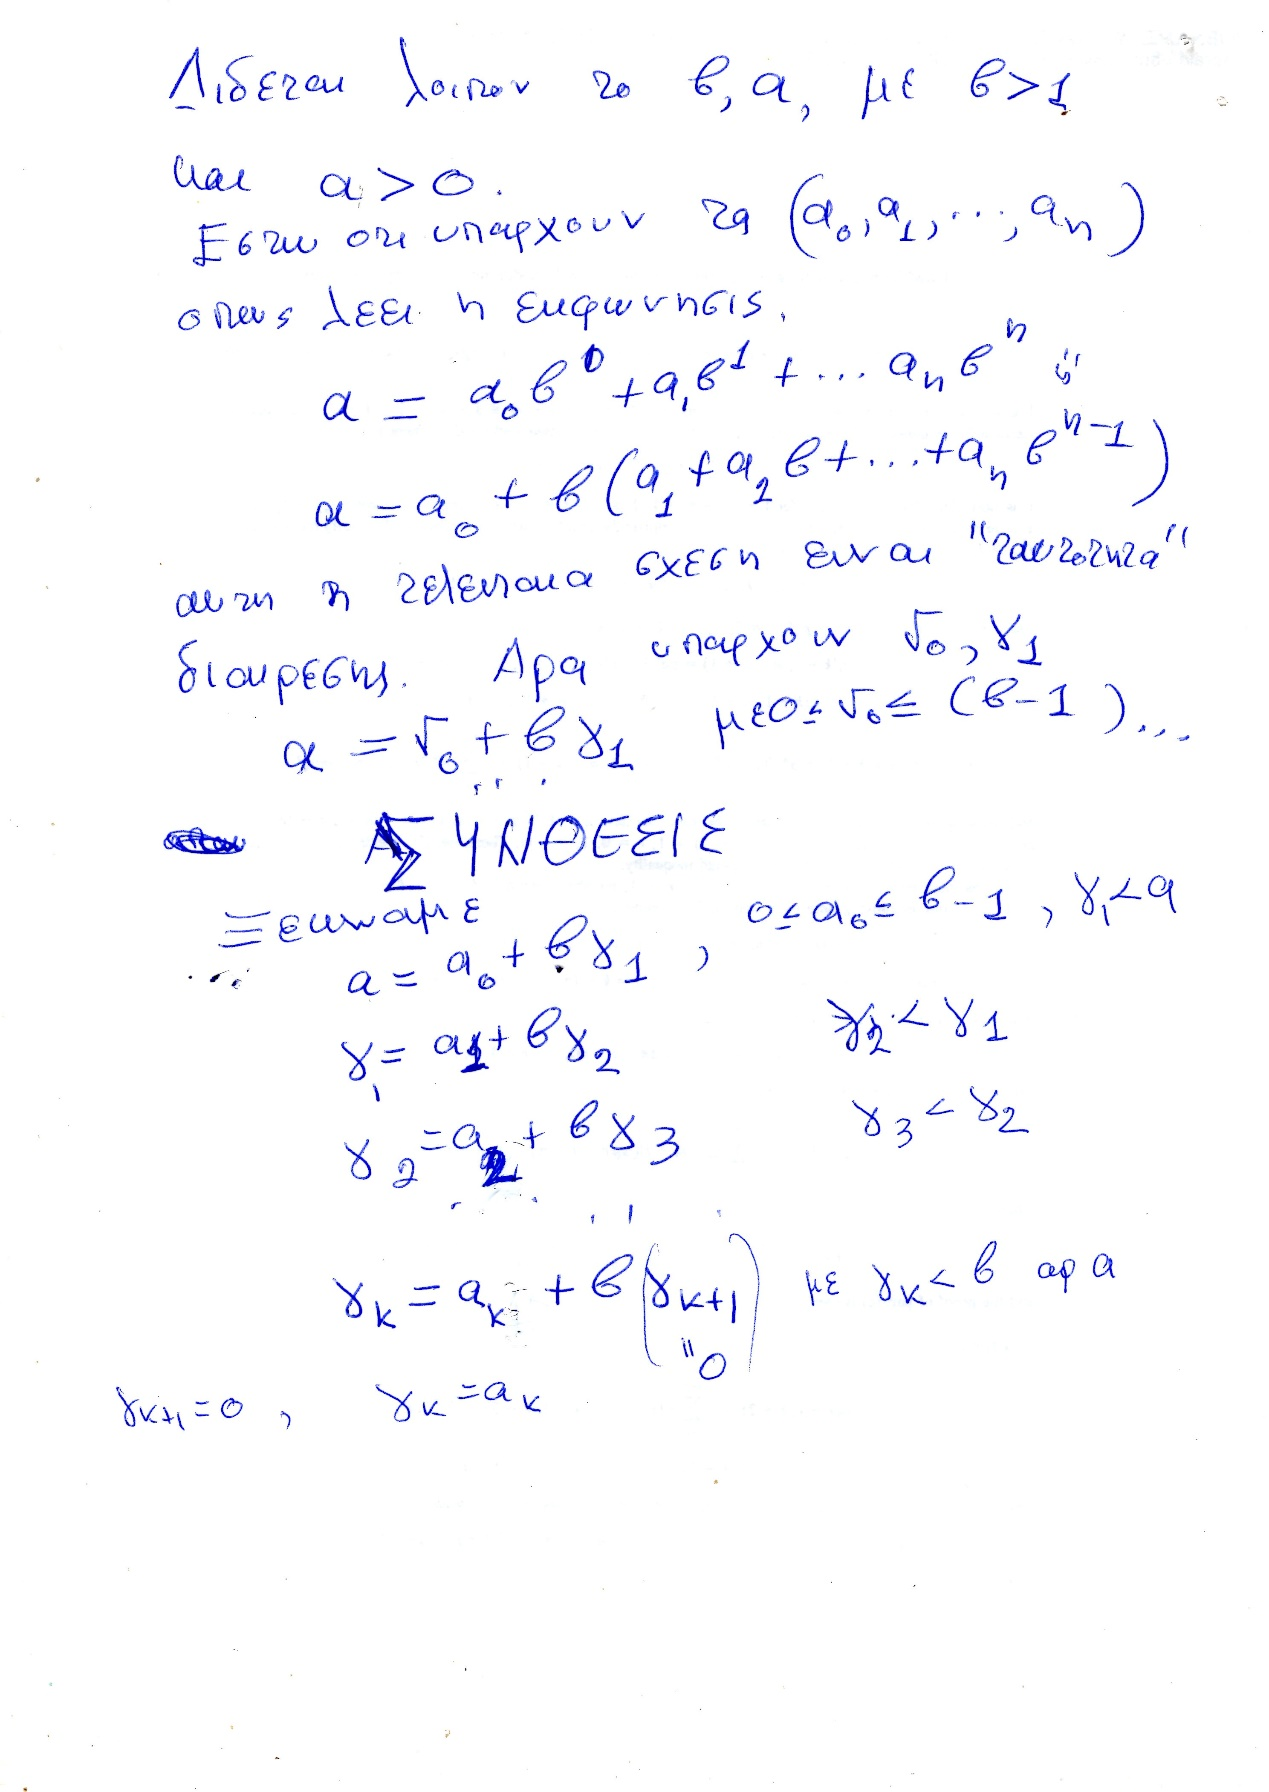 Διδεται λοιπον το β, α, με β>1
και α>0.
Εστω οτι υπαρχουν τα (α₀, α₁, ..., αₙ)
οπως λεει η εκφωνησις.
α = α₀β⁰ + α₁β¹ + ... αₙβⁿ ή
α = α₀ + β(α₁ + α₂β + ... + αₙβⁿ⁻¹)
αυτη η τελευταια σχεση ειναι "ταυτοτητα"
διαιρεσης. Αρα υπαρχουν √₀, γ₁
α = √₀ + βγ₁ με 0 ≤ √₀ ≤ (β-1)...
ΣΥΝΘΕΣΙΣ
Ξεκιναμε
α = α₀ + βγ₁, 0 ≤ α₀ ≤ β-1, γ₁<α
γ₁ = α₁ + βγ₂ γ₂ < γ₁
γ₂ = α₂ + βγ₃ γ₃ < γ₂
...
γₖ = αₖ + β(γₖ₊₁) με γₖ < β αρα
"0
γₖ₊₁ = 0, γₖ = αₖ